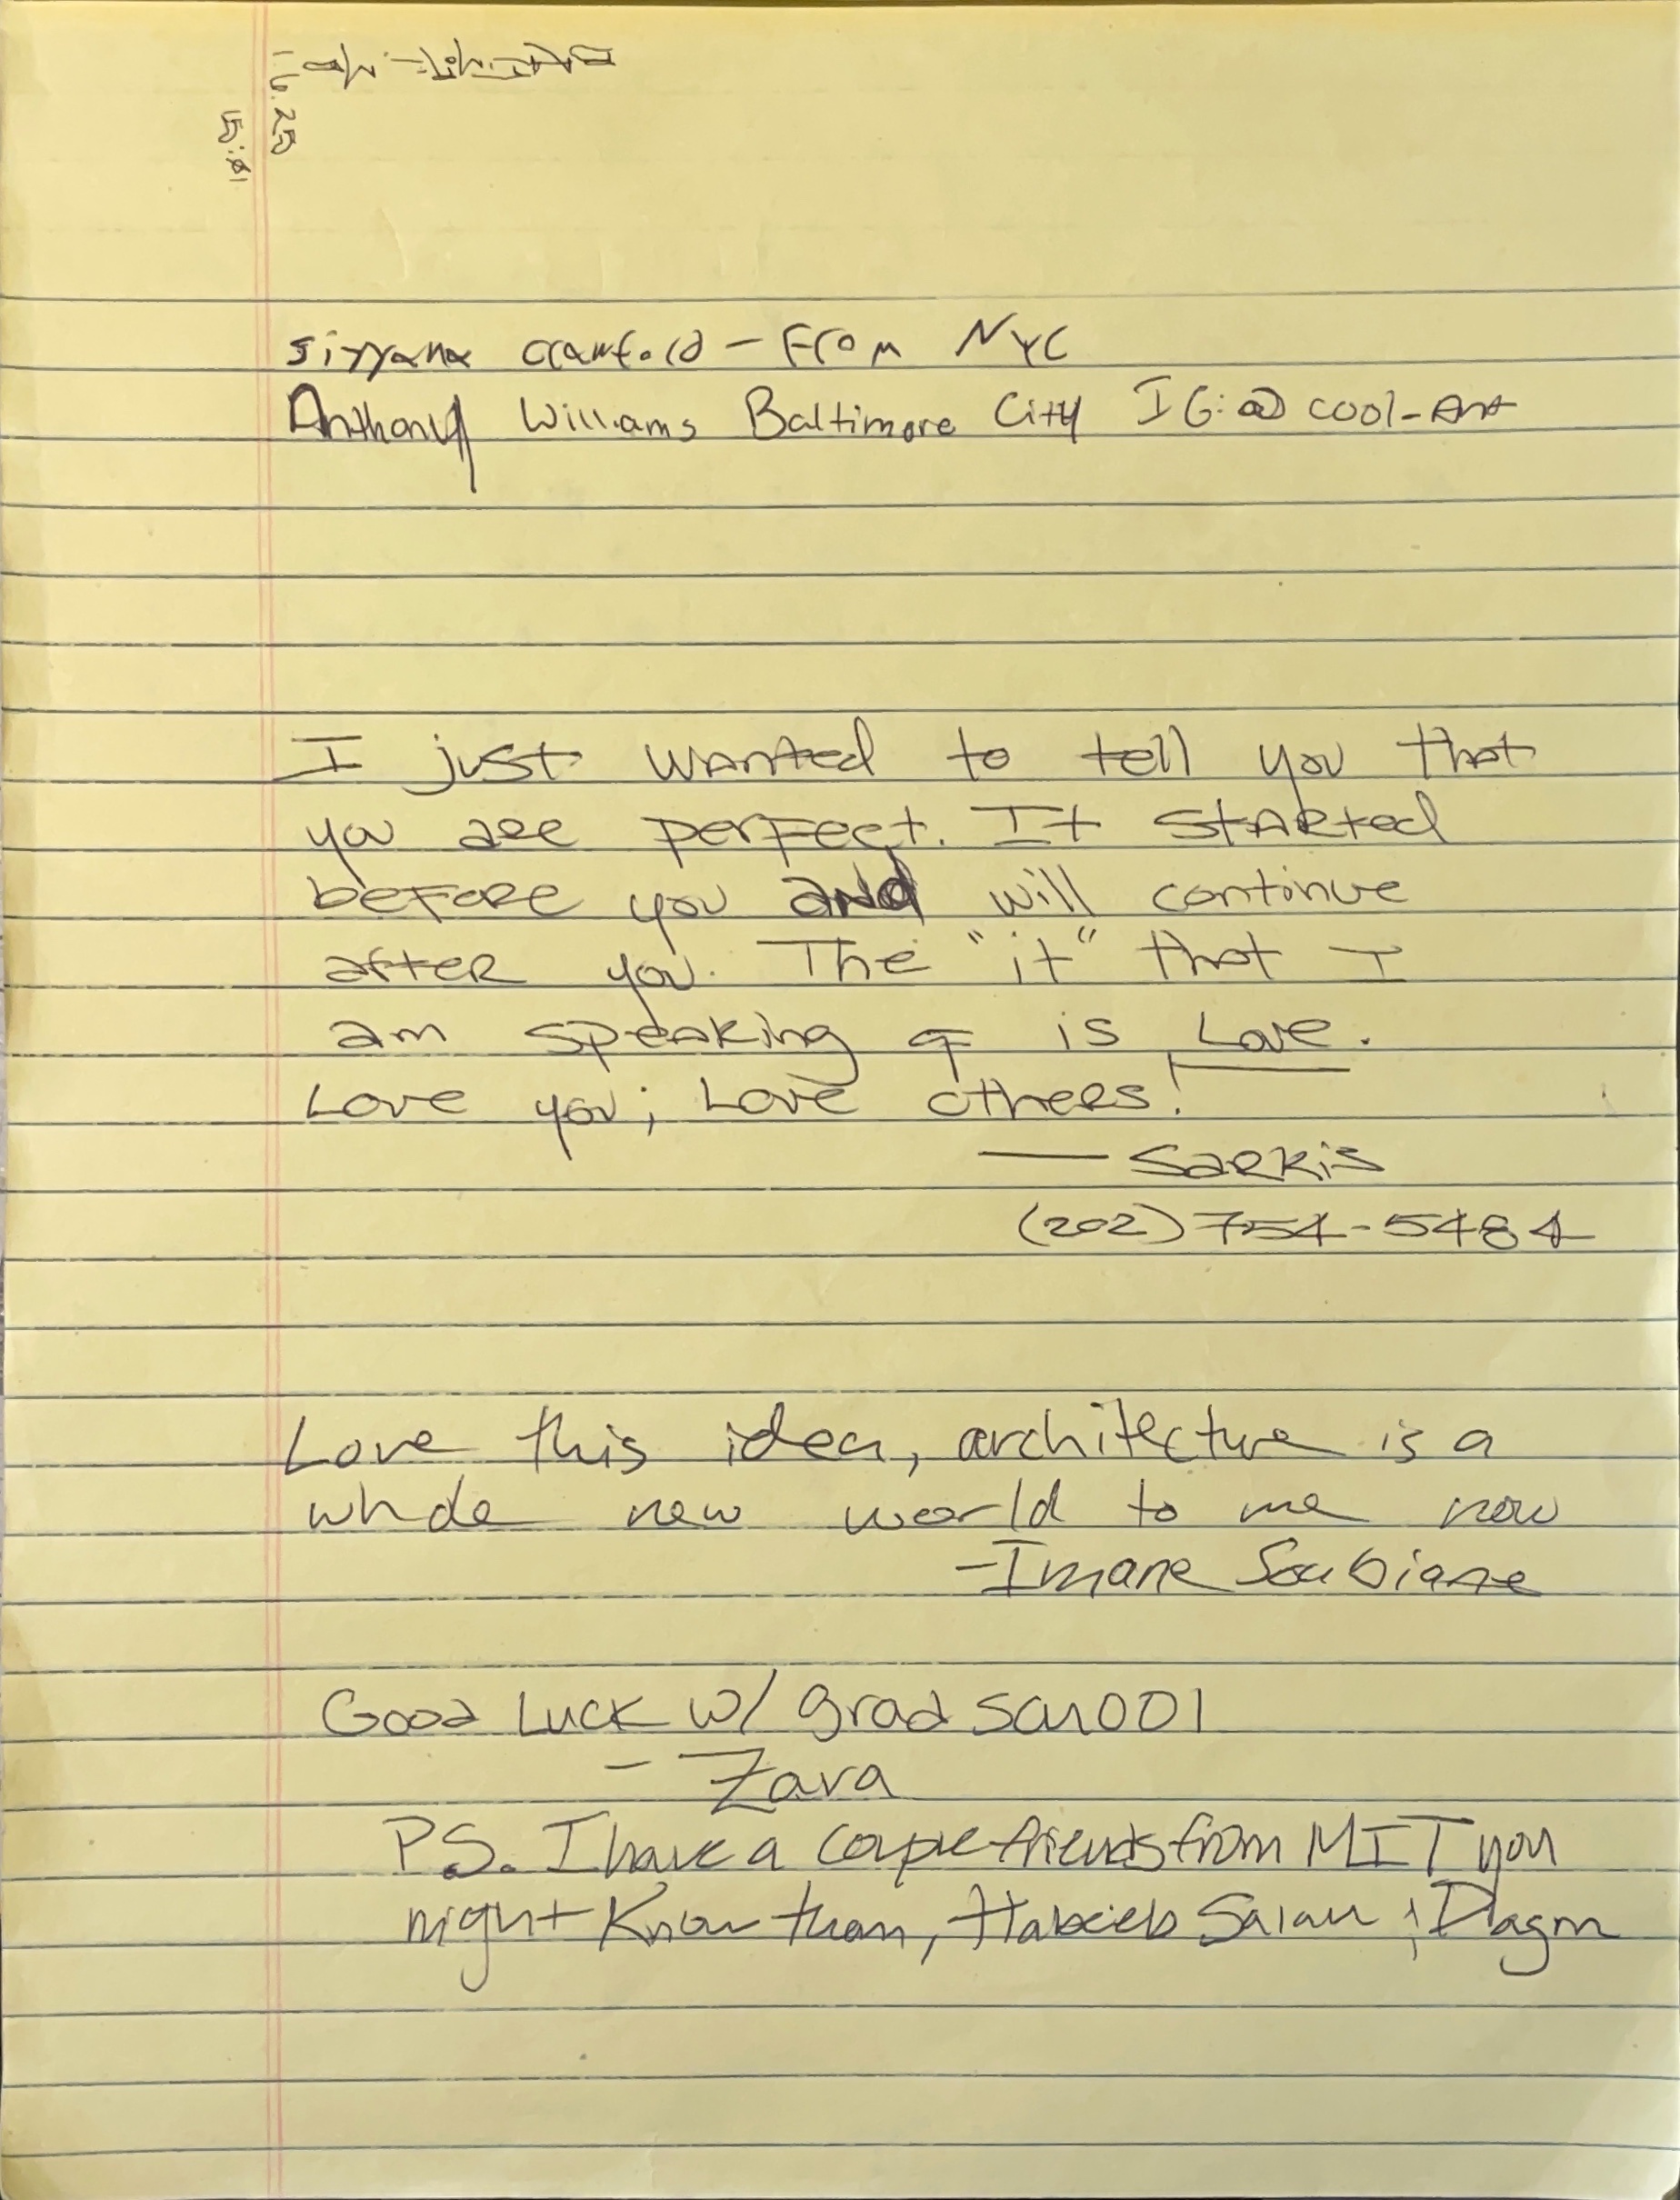 6.25
siyyana crawford - From NYC
Anthony Williams Baltimore City IG: @ cool-Ant
I just wanted to tell you that
you are perfect. It started
before you and will continue
after you. The "it" that I
am speaking of is Love.
Love you; Love others!
— Sarkis
(202) 754-5484
Love this idea, architecture is a
whole new world to me now
- Imane Soubiane
Good Luck w/ grad school
- Zara
P.S. I have a couple friends from MIT you
might know tham, Salau & Dagm